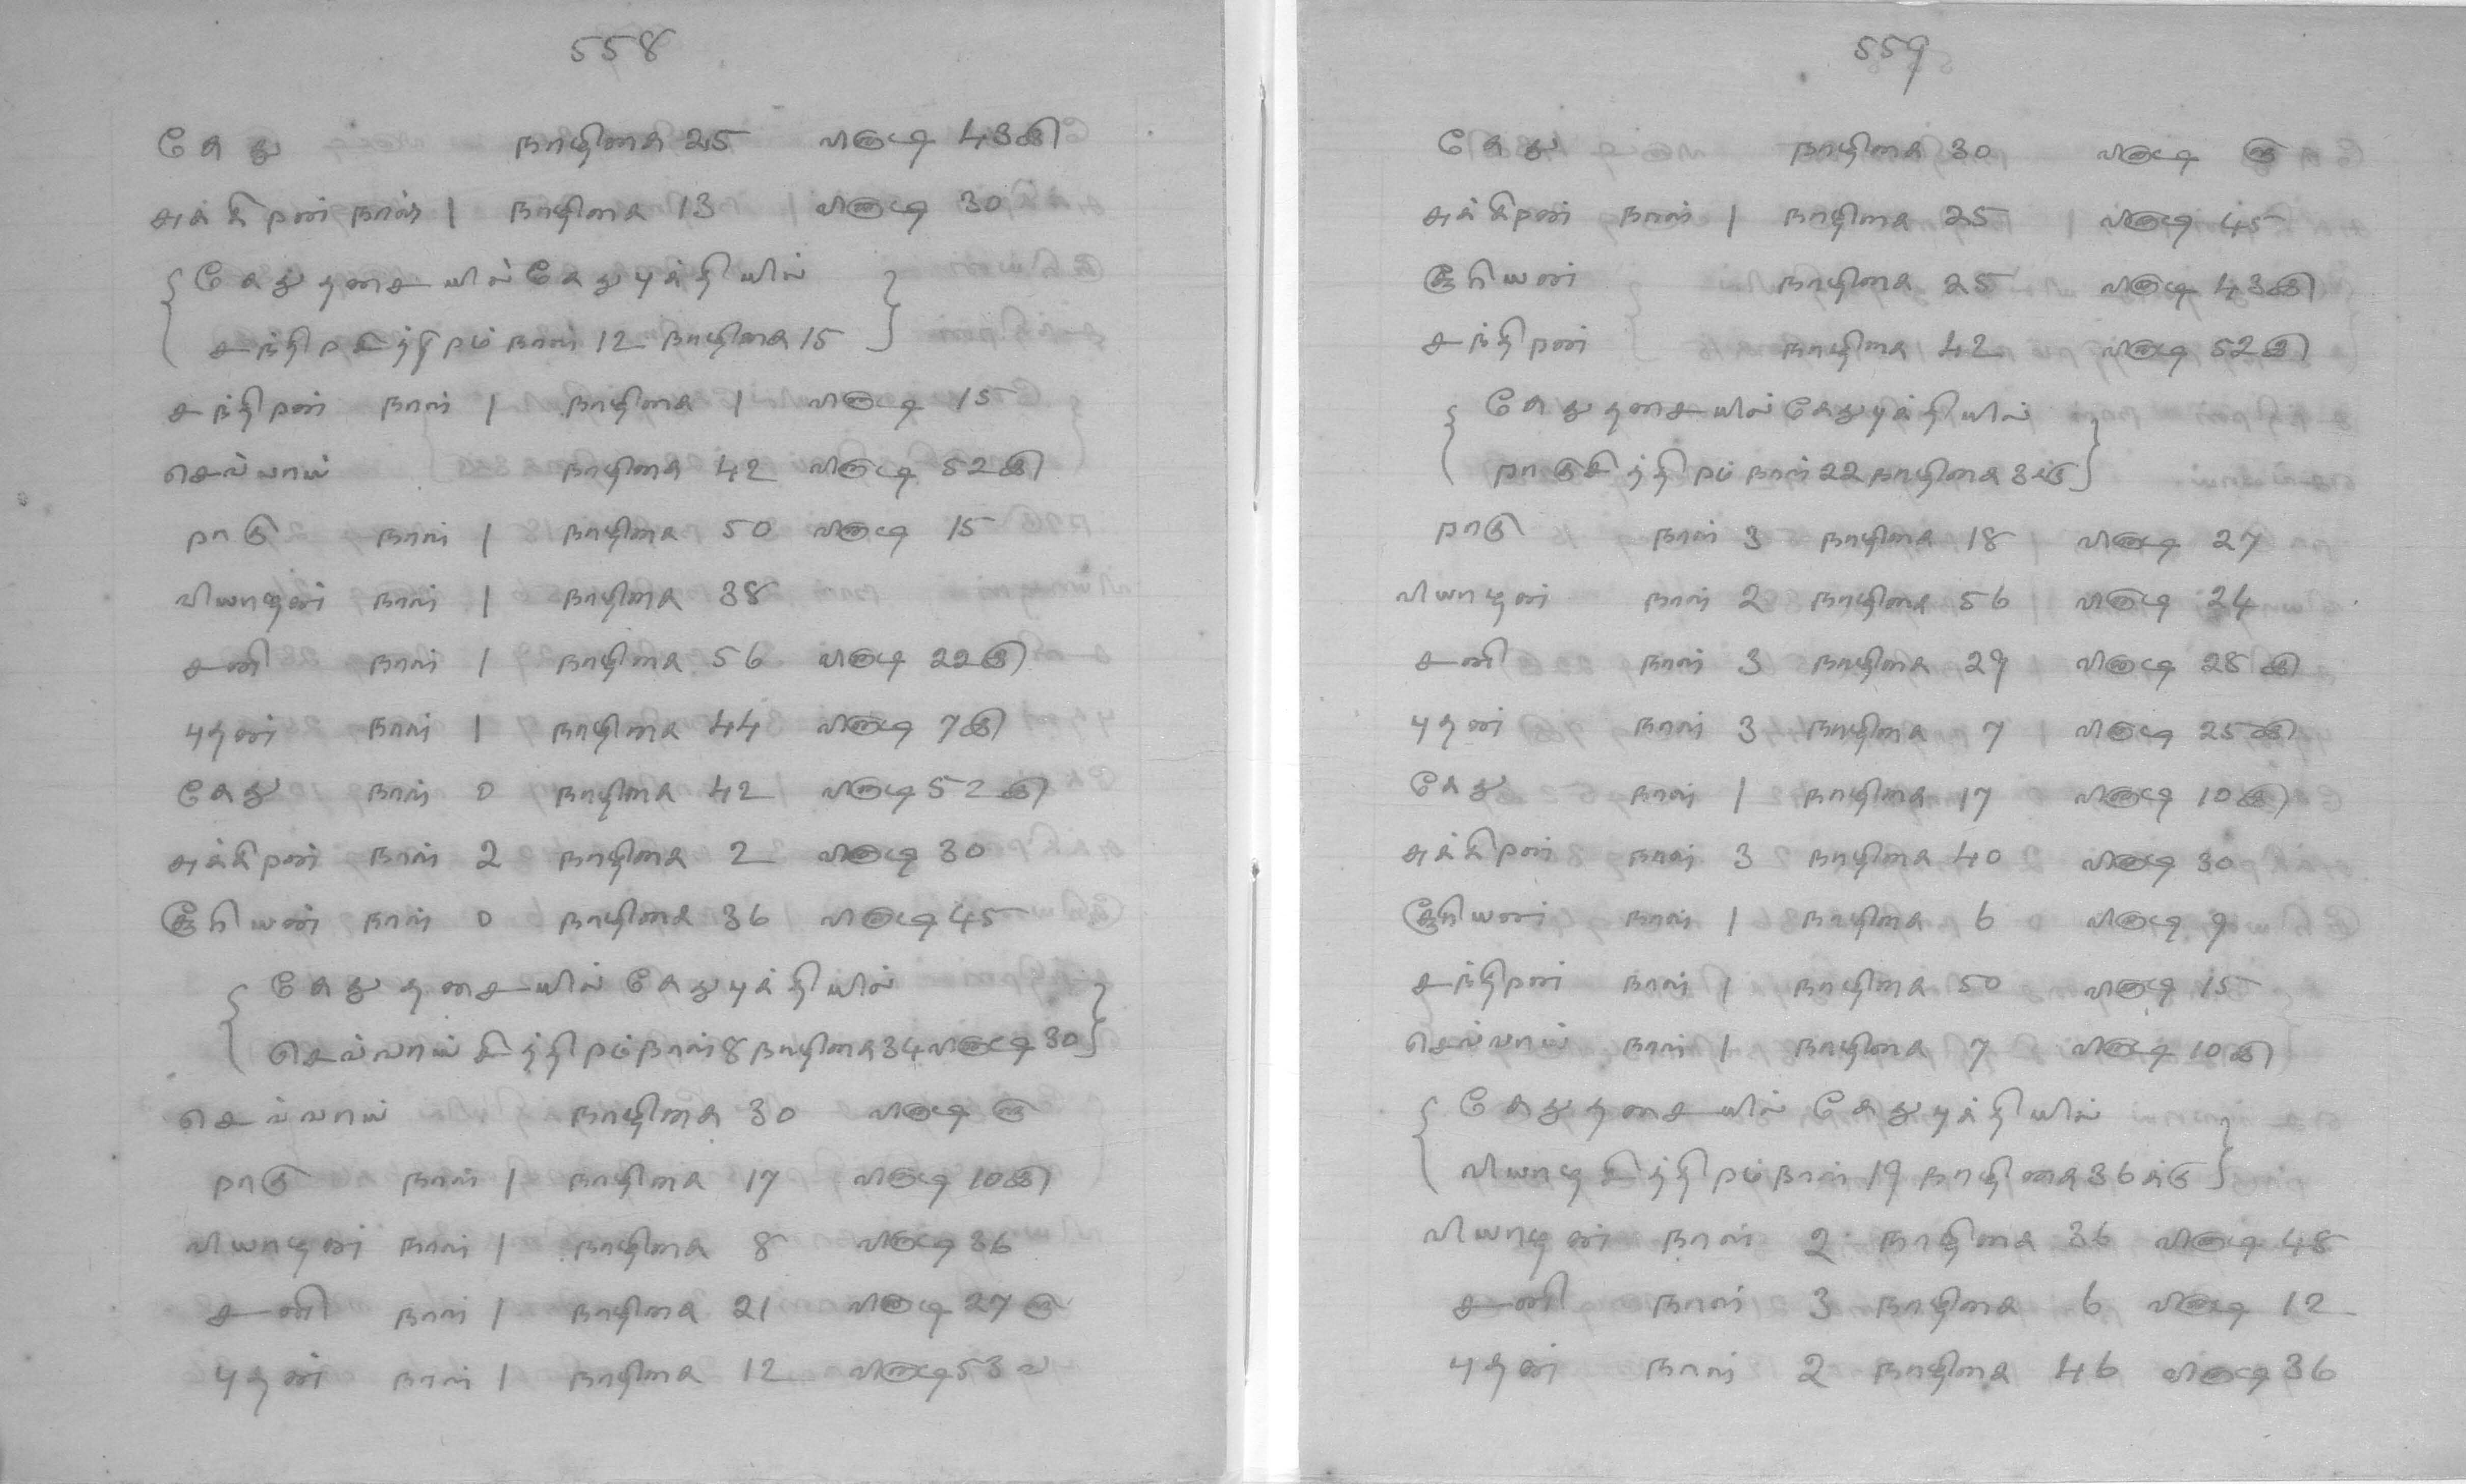 558
கேது நாழிகை 25 விநாடி 43௫
சுக்கிரன் நாள் 1 நாழிகை 13 விநாடி 30
{ கேதுதசையில் கேதுபுக்தியில்
சந்திரசித்திரம் நாள் 12 நாழிகை 15 }
சந்திரன் நாள் 1 நாழிகை 1 விநாடி 15
செவ்வாய் நாழிகை 42 விநாடி 52
ராகு நாள் 1 நாழிகை 50 விநாடி 15
வியாழன் நாள் 1 நாழிகை 38
சனி நாள் 1 நாழிகை 56 விநாடி 22
புதன் நாள் 1 நாழிகை 44 விநாடி 7
கேது நாள் 0 நாழிகை 42 விநாடி 52
சுக்கிரன் நாள் 2 நாழிகை 2 விநாடி 30
சூரியன் நாள் 0 நாழிகை 36 விநாடி 45
{ கேது தசையில் கேதுபுக்தியில்
செவ்வாய் சித்திரம் நாள் 8 நாழிகை 34 விநாடி 30 }
செவ்வாய் நாழிகை 30 விநாடி
ராகு நாள் 1 நாழிகை 17 விநாடி 10
வியாழன் நாள் 1 நாழிகை 8 விநாடி 36
சனி நாள் 1 நாழிகை 21 விநாடி 27
புதன் நாள் 1 நாழிகை 12 விநாடி 53
559
கேது நாழிகை 30 விநாடி
சுக்கிரன் நாள் 1 நாழிகை 25 விநாடி 45
சூரியன் நாழிகை 25 விநாடி 43
சந்திரன் நாழிகை 42 விநாடி 52
{ கேதுதசையில் கேதுபுக்தியில்
ராகுசித்திரம் நாள் 22 நாழிகை 3க்கு }
ராகு நாள் 3 நாழிகை 18 விநாடி 27
வியாழன் நாள் 2 நாழிகை 56 விநாடி 24
சனி நாள் 3 நாழிகை 29 விநாடி 28
புதன் நாள் 3 நாழிகை 7 விநாடி 25
கேது நாள் 1 நாழிகை 17 விநாடி 10
சுக்கிரன் நாள் 3 நாழிகை 40 விநாடி 30
சூரியன் நாள் 1 நாழிகை 6 விநாடி 9
சந்திரன் நாள் 1 நாழிகை 50 விநாடி 15
செவ்வாய் நாள் 1 நாழிகை 7 விநாடி 10
{ கேதுதசையில் கேதுபுக்தியில்
வியாழசித்திரம் நாள் 19 நாழிகை 36க்கு }
வியாழன் நாள் 2 நாழிகை 36 விநாடி 48
சனி நாள் 3 நாழிகை 6 விநாடி 12
புதன் நாள் 2 நாழிகை 46 விநாடி 36